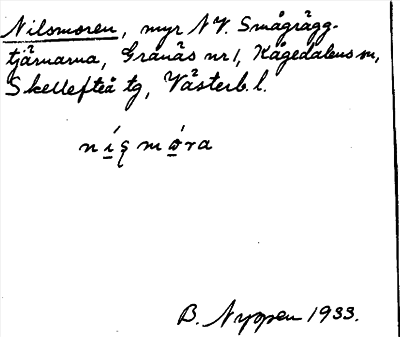 Nilsmoren, myr NV. Smågrägg-
tjärnarna, Granäs nr 1, Kågedalens sn,
Skellefteå tg, Västerb. l.
B. Nyppen 1933.